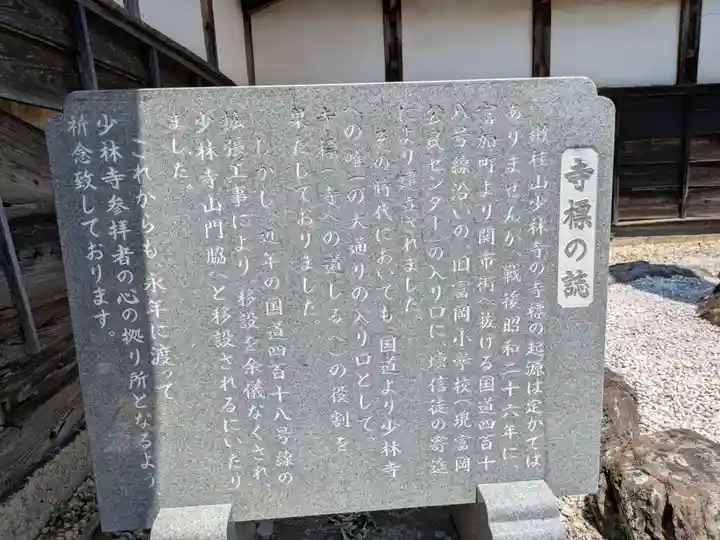 寺標の誌
桂山少林寺の寺標の起源は定かでは
ありませんが、戦後昭和二十六年に、
富加町より関市街へ抜ける国道四百十
八号線沿いの旧富岡小学校(現富岡
公民センター)の入り口に、壇信徒の寄進
により建立されました。
その時代においても、国道より少林寺
への唯一の大通りの入り口として、
寺標(寺への道しるべ)の役割を
果たしておりました。
しかし、近年の国道四百十八号線の
拡張工事により、移設を余儀なくされ、
少林寺山門脇へと移設されるにいたり
ました。
これからも、永年に渡って
少林寺参拝者の心の拠り所となるよう、
祈念致しております。